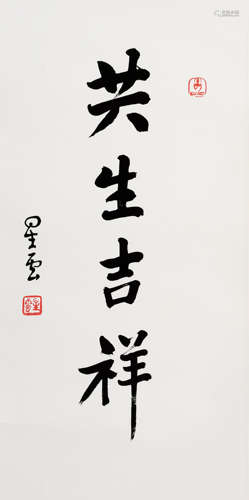 共生吉祥
星雲